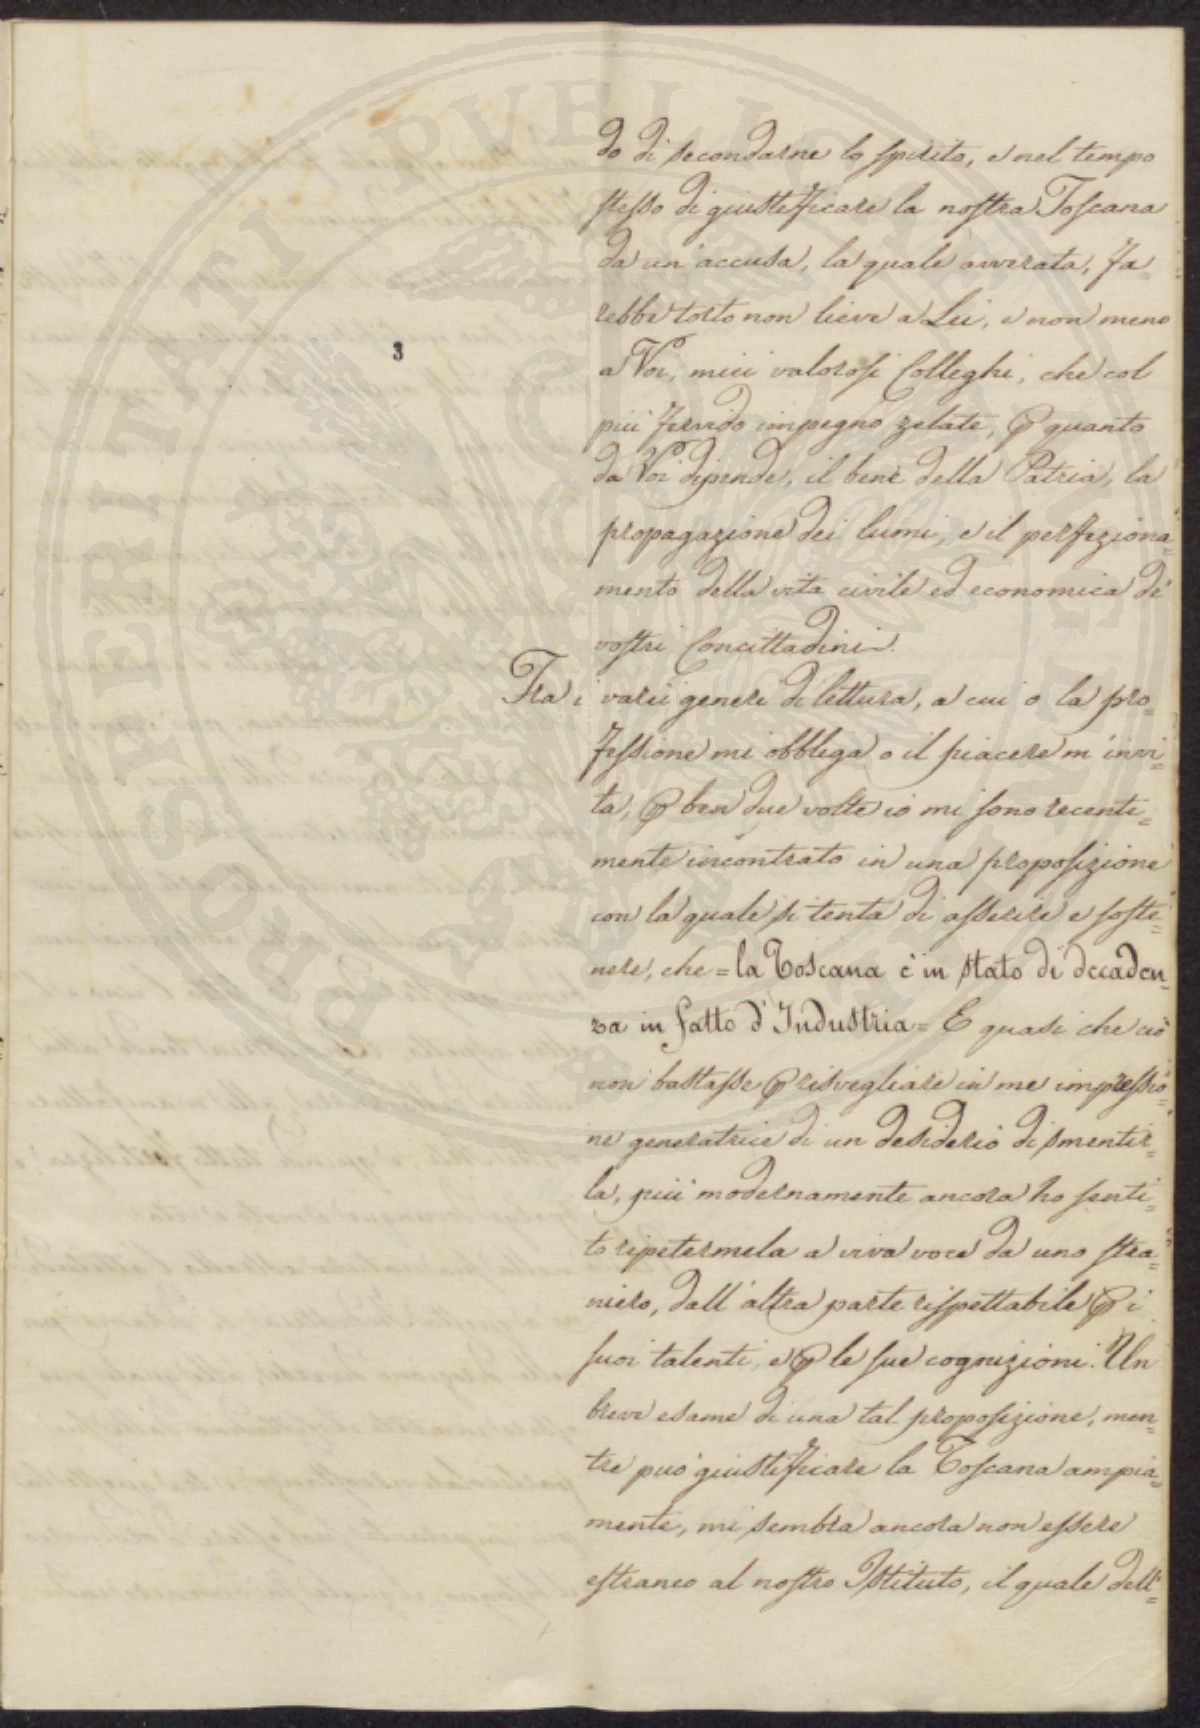 3
do di secondarne lo spirito, e nel tempo
stesso di giustificare la nostra Toscana
da un'accusa, la quale avverata, fa=
rebbe torto non lieve a Lei, e non meno
a Voi, miei valorosi Colleghi, che col
più fervido impegno zelate, ꝑ quanto
da Voi dipende, il bene della Patria, la
propagazione dei lumi, e il perfeziona=
mento della vita civile ed economica de'
vostri Concittadini.
Tra i varii generi di lettura, a cui o la pro=
fessione mi obbliga o il piacere m'invi=
ta, ꝑ ben due volte io mi sono recente=
mente incontrato in una proposizione
con la quale si tenta di asserire e soste=
nere, che = la Toscana è in stato di decaden=
za in fatto d'Industria = E quasi che ciò
non bastasse ꝑ risvegliare in me impressio=
ne generatrice di un desiderio di smentir=
la, più modernamente ancora ho senti=
to ripetermela a viva voce da uno stra=
niero, dall'altra parte rispettabile ꝑ i
suoi talenti, e ꝑ le sue cognizioni. Un
breve esame di una tal proposizione, men=
tre può giustificare la Toscana ampia=
mente, mi sembra ancora non essere
estraneo al nostro Istituto, il quale dell'=
PROSPERITATI PVBLICAE